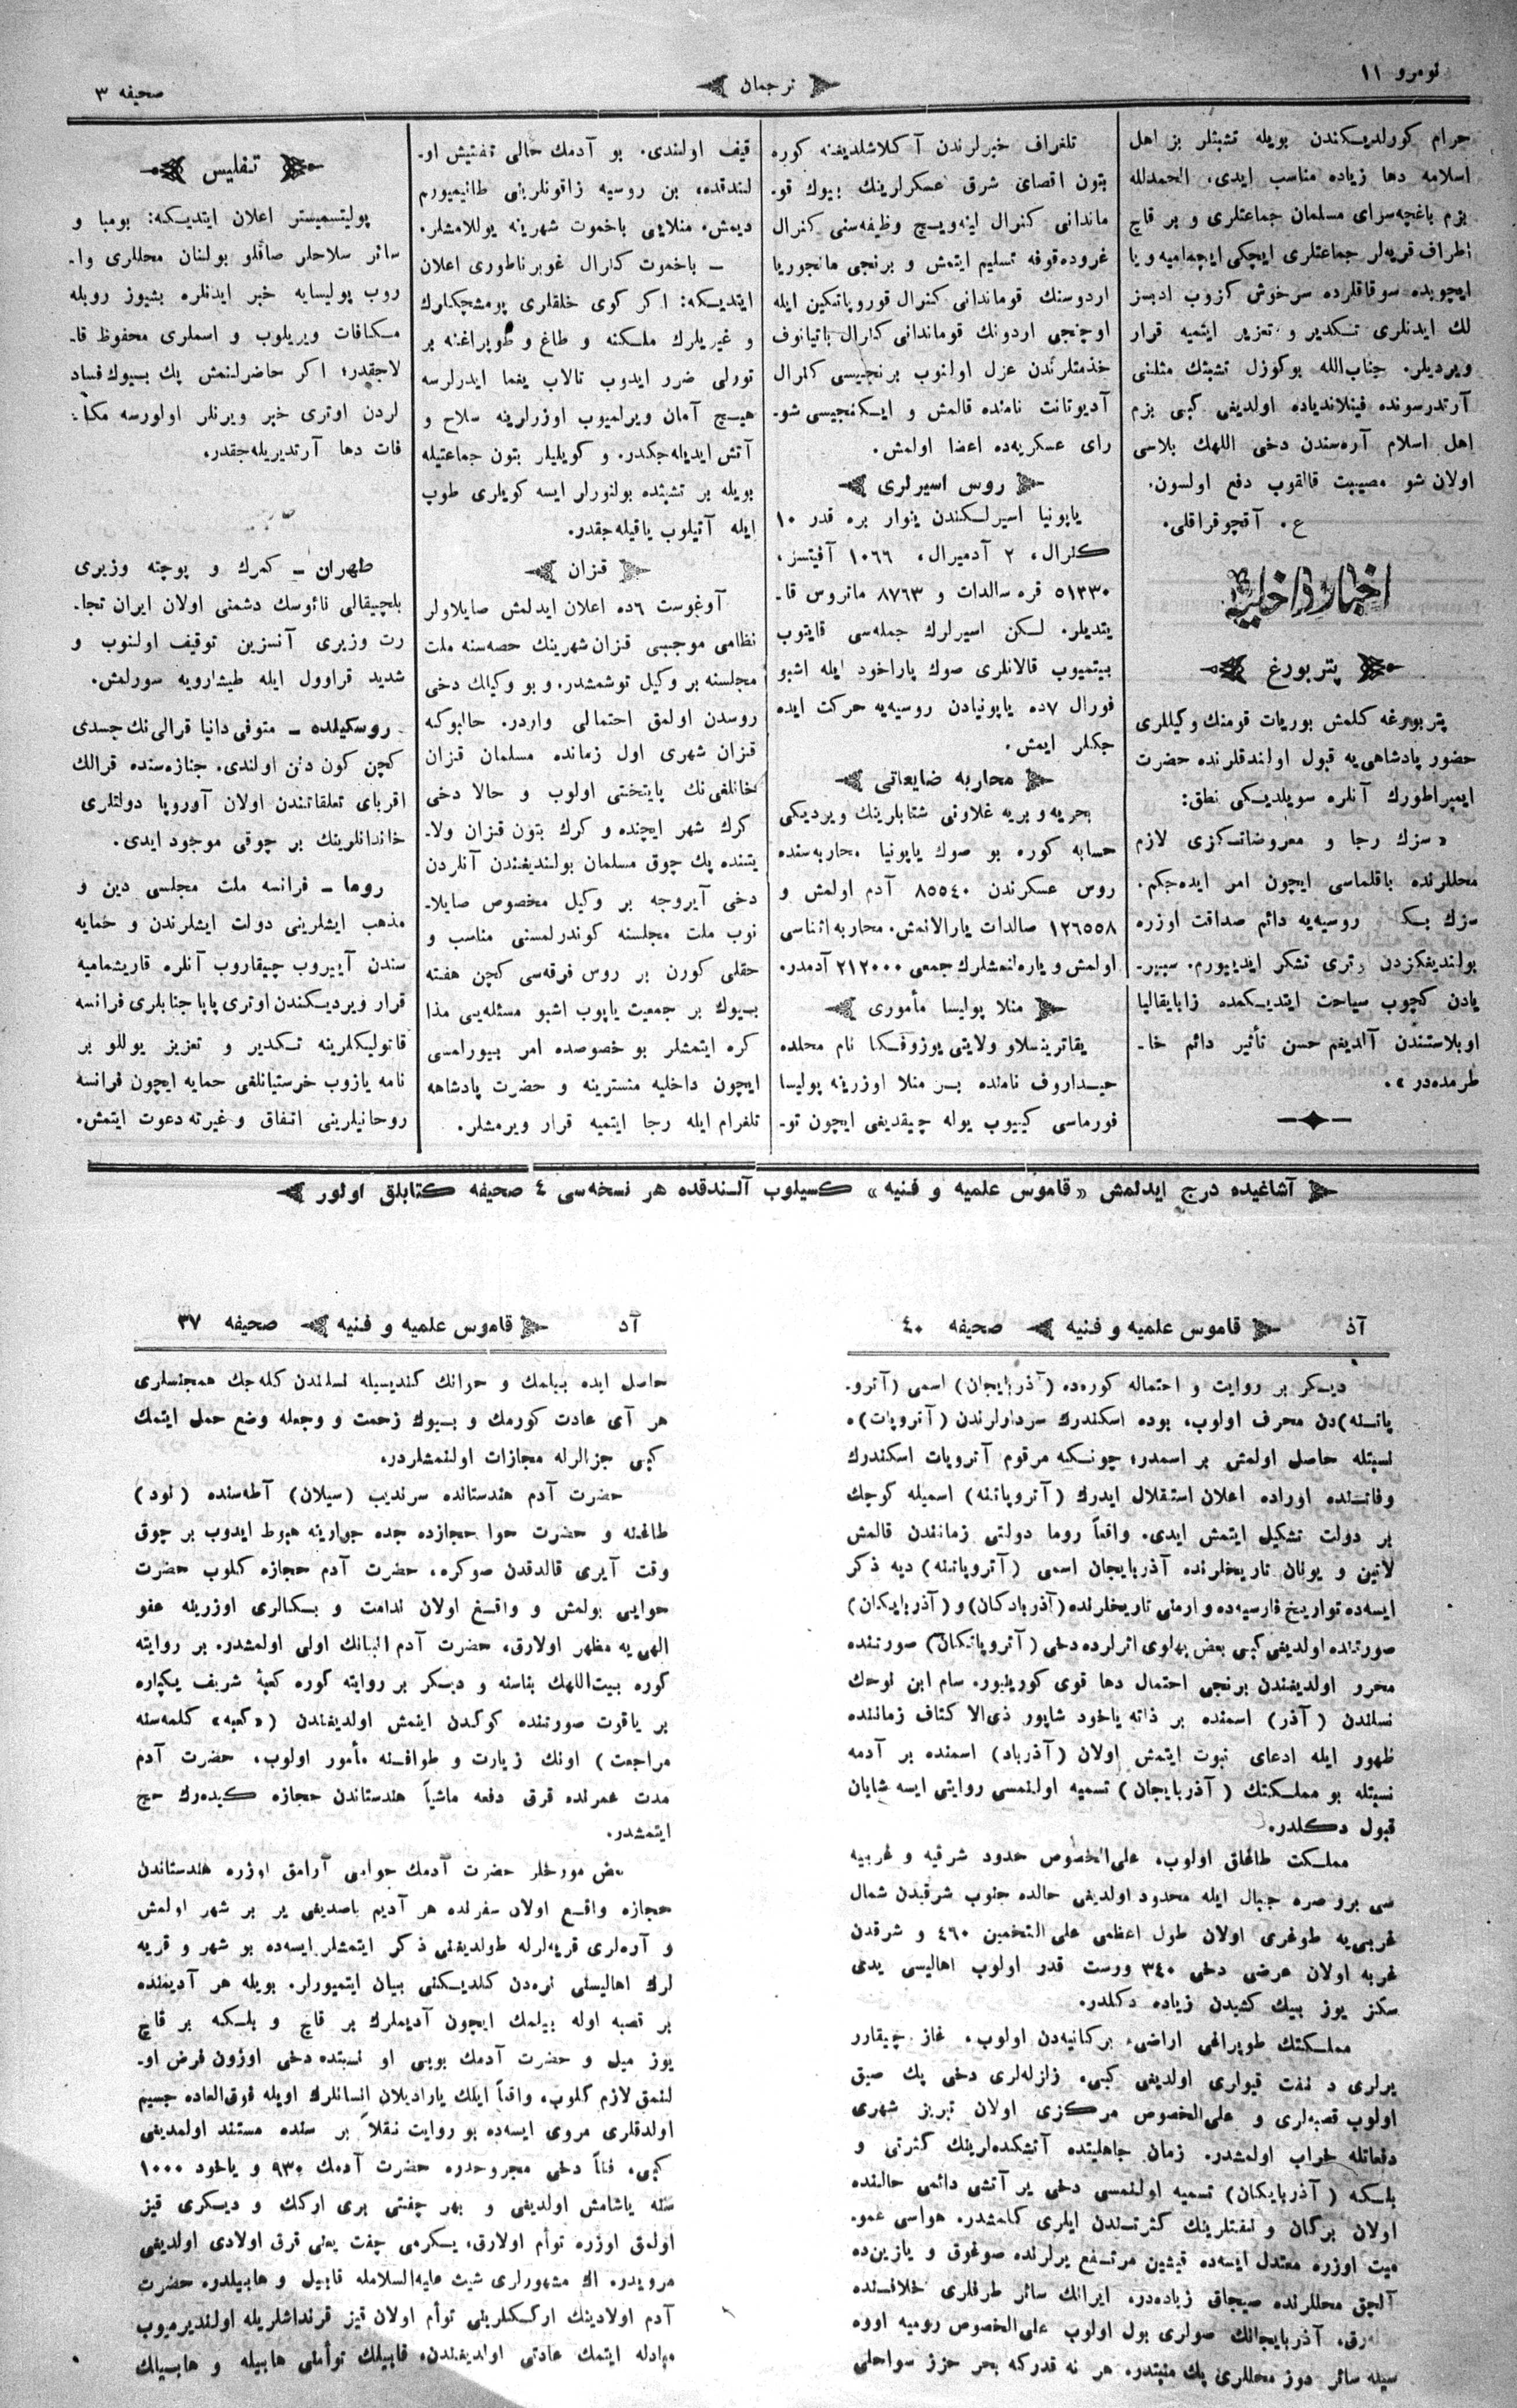 نومرو ١١
ترجمان
صحیفه ٣
حرام كورلدیكندن بویله تشبثلر بز اهل
اسلامه دها زیاده مناسب ایدی، الحمدلله
بزم باغچه‌سرای مسلمان جماعتلری و بر قاچ
اطراف قریه‌لر جماعتلری ایچكی ایچمامیه و یا
ایچوبده سوقاقلرده سرخوش كزوب ادبسز
لك ایدنلری تكدیر و تعزیر ایتمیه قرار
ویردیلر. جناب‌الله بوكوزل تشبثك مثلنی
آرتدرسونده فینلاندیاده اولدیغی كبی بزم
اهل اسلام آره‌سندن دخی اللهك بلاسی
اولان شو مصیبت قالقوب دفع اولسون.
ع. آقچوقراقلی.
اخبار داخلیه
پتربورغ
پتربورغه كلمش بوریات قومنك وكیللری
حضور پادشاهی‌یه قبول اولندقلرنده حضرت
ایمپراطورك آنلره سویلدیكی نطق:
« سزك رجا و معروضاتكزی لازم
محللرنده باقلماسی ایچون امر ایده‌جكم.
سزك بكا و روسیه‌یه دائم صداقت اوزره
بولندیغكزدن اوتری تشكر ایدییورم. سیبر-
یادن كچوب سیاحت ایتدیكمده زابایقالیا
اوبلاستندن آلدیغم حسن تأثیر دائم خا-
طرمده‌در ».
تلغراف خبرلرندن آكلاشلدیغنه كوره
بتون اقصائ شرق عسكرلرینك بیوك قو-
ماندانی كنرال لینه‌ویچ وظیفه‌سنی كنرال
غروده‌قوفه تسلیم ایتمش و برنجی مانجوریا
اردوسنك قوماندانی كنرال قوروپاتكین ایله
اوچنجی اردونك قوماندانی كنرال باتیانوف
خذمتلرندن عزل اولنوب برنجیسی كنرال
آدیوتانت نامنده قالمش و ایكنجیسی شو-
رای عسكریه‌ده اعضا اولمش.
روس اسیرلری
یاپونیا اسیرلكندن ینوار بره قدر ١٠
كنرال، ٢ آدمیرال، ١٠٦٦ آفیتسر،
٥١٣٣٠ قره سالدات و ٨٧٦٣ ماتروس قا-
یتدیلر. لكن اسیرلرك جمله‌سی قایتوب
بیتمیوب قالانلری صوك پاراخود ایله اشبو
فورال ٧ده یاپونیادن روسیه‌یه حركت ایده
جكلر ایمش.
محاربه ضایعاتی
بحریه و بریه غلاونی شتابلرینك ویردیكی
حسابه كوره بو صوك یاپونیا محاربه‌سنده
روس عسكرندن ٨٥٥٤٠ آدم اولمش و
١٢٦٥٥٨ صالدات یارالانمش. محاربه اثناسی
اولمش و یاره‌لنمشلرك جمعی ٢١٢٠٠٠ آدمدر.
منلا پولیسا مأموری
یقاترینسلاو ولایتی یوزوفكا نام محلده
حیداروف نامنده بر منلا اوزرینه پولیسا
فورماسی كییوب یوله چیقدیغی ایچون تو-
قیف اولندی. بو آدمك حالی تفتیش او-
لندقده، بن روسیه زاقونلرینی طانیمیورم
دیمش. منلایی باخموت شهرینه یوللامشلر.
– باخموت كنرال غوبرناطوری اعلان
ایتدیكه: اكر كوی خلقلری پومشچكلرك
و غیریلرك ملكنه و طاغ و طوپراغنه بر
تورلی ضرر ایدوب تالاب یغما ایدرلرسه
هیچ آمان ویرلمیوب اوزرلرینه سلاح و
آتش ایدیله‌جكدر. و كویلیلر بتون جماعتیله
بویله بر تشبثده بولنورلر ایسه كویلری طوپ
ایله آتیلوب یاقیله‌جقدر.
قزان
آوغوست ٦ده اعلان ایدلمش صایلاولر
نظامی موجبی قزان شهرینك حصه‌سنه ملت
مجلسنه بر وكیل توشمشدر. و بو وكیلك دخی
روسدن اولمق احتمالی واردر. حالبوكه
قزان شهری اول زمانده مسلمان قزان
خانلغی‌نك پایتختی اولوب و حالا دخی
كرك شهر ایچنده و كرك بتون قزان ولا-
یتنده پك چوق مسلمان بولندیغندن آنلردن
دخی آیروجه بر وكیل مخصوص صایلا-
نوب ملت مجلسنه كوندرلمسنی مناسب و
حقلی كورن بر روس فرقه‌سی كچن هفته
بیوك بر جمعیت یاپوب اشبو مسئله‌یی مذا
كره ایتمشلر بو خصوصده امر بیورلمسی
ایچون داخلیه منسترینه و حضرت پادشاهه
تلغرام ایله رجا ایتمیه قرار ویرمشلر.
تفلیس
پولیتسمیستر اعلان ایتدیكه: بومبا و
سائر سلاحلر صاقلو بولنان محللری وا-
روب پولیسایه خبر ایدنلره بشیوز روبله
مكافات ویریلوب و اسملری محفوظ قا-
لاجقدر؛ اكر حاضرلنمش پك بیوك فساد
لردن اوتری خبر ویرنلر اولورسه مكا-
فات دها آرتدیریله‌جقدر.
طهران – كمرك و پوچته وزیری
بلچیقالی نائوسك دشمنی اولان ایران تجا-
رت وزیری آنسزین توقیف اولنوب و
شدید قراوول ایله طیشارویه سورلمش.
روسكیلده – متوفی دانیا قرالی‌نك جسدی
كچن كون دفن اولندی. جنازه‌سنده قرالك
اقربای تعلقاتندن اولان آوروپا دولتلری
خاندانلرینك بر چوقی موجود ایدی.
روما – فرانسه ملت مجلسی دین و
مذهب ایشلرینی دولت ایشلرندن و حمایه
سندن آییروب چیقاروب آنلره قاریشمامیه
قرار ویردیكندن اوتری پاپا جنابلری فرانسه
قاتولیكلرینه تكدیر و تعزیز یوللو بر
نامه یازوب خرستیانلغی حمایه ایچون فرانسه
روحانیلرینی اتفاق و غیرته دعوت ایتمش.
آشاغیده درج ایدلمش « قاموس علمیه و فنیه » كسیلوب آلندقده هر نسخه‌سی ٤ صحیفه كتابلق اولور
آذ قاموس علمیه و فنیه صحیفه ٤٠
دیكر بر روایت و احتماله كوره‌ده (آذربایجان) اسمی (آترو-
پاتنه)دن محرف اولوب، بوده اسكندرك سردارلرندن (آتروپات)ه
نسبتله حاصل اولمش بر اسمدر؛ چونكه مرقوم آتروپات اسكندرك
وفاتنده اوراده اعلان استقلال ایدرك (آتروپاتنه) اسمیله كوچك
بر دولت تشكیل ایتمش ایدی. واقعاً روما دولتی زمانندن قالمش
لاتین و یونان تاریخلرنده آذربایجان اسمی (آتروپاتنه) دیه ذكر
ایسه‌ده تواریخ فارسیه‌ده و ارمنی تاریخلرنده (آذربادكان) و (آذربایكان)
صورتنده اولدیغی كبی بعض پهلوی اثرلرده دخی (آتروپاتكان) صورتنده
محرر اولدیغندن برنجی احتمال دها قوی كورینیور. سام ابن نوحك
نسلندن (آذر) اسمنده بر ذاته یاخود شاپور ذی‌الاكتاف زماننده
ظهور ایله ادعای نبوت ایتمش اولان (آذرباد) اسمنده بر آدمه
نسبتله بو مملكتك (آذربایجان) تسمیه اولنمسی روایتی ایسه شایان
قبول دكلدر.
مملكت طاغلق اولوب، علی‌الخصوص حدود شرقیه و غربیه
سی برو صره جبال ایله محدود اولدیغی حالده جنوب شرقیدن شمال
غربی‌یه طوغری اولان طول اعظمی علی‌التخمین ٤٦٠ و شرقدن
غربه اولان عرضی دخی ٣٤٠ ورست قدر اولوب اهالیسی یدی
سكز یوز بیك كشیدن زیاده دكلدر.
مملكتك طوپراغی اراضیء بركانیه‌دن اولوب، غاز چیقارر
یرلری و نفت قیولری اولدیغی كبی، زلزله‌لری دخی پك صیق
اولوب قصبه‌لری و علی‌الخصوص مركزی اولان تبریز شهری
دفعاتله خراب اولمشدر. زمان جاهلیتده آتشكده‌لرینك كثرتی و
بلكه (آذربایكان) تسمیه اولنمسی دخی یر آتشی دائمی حالنده
اولان بركان و نفتلرینك كثرتندن ایلری كلمشدر. هواسی عمو-
میت اوزره معتدل ایسه‌ده قیشین مرتفع یرلرنده صوغوق و یازین‌ده
آلچق محللرنده صیجاق زیاده‌در. ایرانك سائر طرفلری خلافنده
آذربایجانك صولری بول اولوب علی‌الخصوص رومیه اووه
سیله سائر دوز محللری پك منبتدر. هر نه قدركه بحر خزر سواحلی
آد قاموس علمیه و فنیه صحیفه ٣٧
حاصل ایده بیلمك و حوانك كندیسیله نسلندن كله‌جك همجنسلری
هر آی عادت كورمك و بیوك زحمت و وجعله وضع حمل ایتمك
كبی جزالرله مجازات اولنمشلردر.
حضرت آدم هندستانده سرندیب (سیلان) آطه‌سنده (نود)
طاغنه و حضرت حوا حجازده جده جوارینه هبوط ایدوب بر چوق
وقت آیری قالدقدن صوكره، حضرت آدم حجازه كلوب حضرت
حوایی بولمش و واقع اولان ندامت و بكالری اوزرینه عفو
الهی‌یه مظهر اولارق، حضرت آدم انبیانك اولی اولمشدر. بر روایته
كوره بیت‌اللهك بناسنه و دیكر بر روایته كوره كعبهٔ شریف یكپاره
بر یاقوت صورتنده كوكدن اینمش اولدیغندن ( «كعبه» كلمه‌سنه
مراجعت) اونك زیارت و طوافنه مأمور اولوب، حضرت آدم
مدت عمرنده قرق دفعه ماشیاً هندستاندن حجازه كیده‌رك حج
ایتمشدر.
بعض مورخلر حضرت آدمك حوایی آرامق اوزره هندستاندن
حجازه واقع اولان سفرنده هر آدیم باصدیغی یر بر شهر اولمش
و آره‌لری قریه‌لرله طولدیغنی ذكر ایتمشلر ایسه‌ده بو شهر و قریه
لرك اهالیسنی نره‌دن كلدیكنی بیان ایتمیورلر. بویله هر آدیمنده
بر قصبه اوله بیلمك ایچون آدیملرك بر قاچ و بلكه بر قاچ
یوز میل و حضرت آدمك بویی او نسبتده دخی اوزون فرض او-
لنمق لازم كلوب، واقعاً ایلك یارادیلان انسانلرك اویله فوق‌العاده جسیم
اولدقلری مروی ایسه‌ده بو روایت نقلاً بر سنده مستند اولمدیغی
كبی، فناً دخی مجروحدر. حضرت آدمك ٩٣٠ و یاخود ١٠٠٠
سنه یاشامش اولدیغی و بهر چفتی بری اركك و دیكری قیز
اولمق اوزره توأم اولارق، یكرمی چفت یعنی قرق اولادی اولدیغی
مرویدر. اك مشهورلری شیث علیه‌السلامله قابیل و هابیلدر. حضرت
آدم اولادینك ارككلرینی توأم اولان قیز قرنداشلریله اولندیرمیوب
مبادله ایتمك عادتی اولدیغندن، قابیلك توأملی هابیله و هابیلك